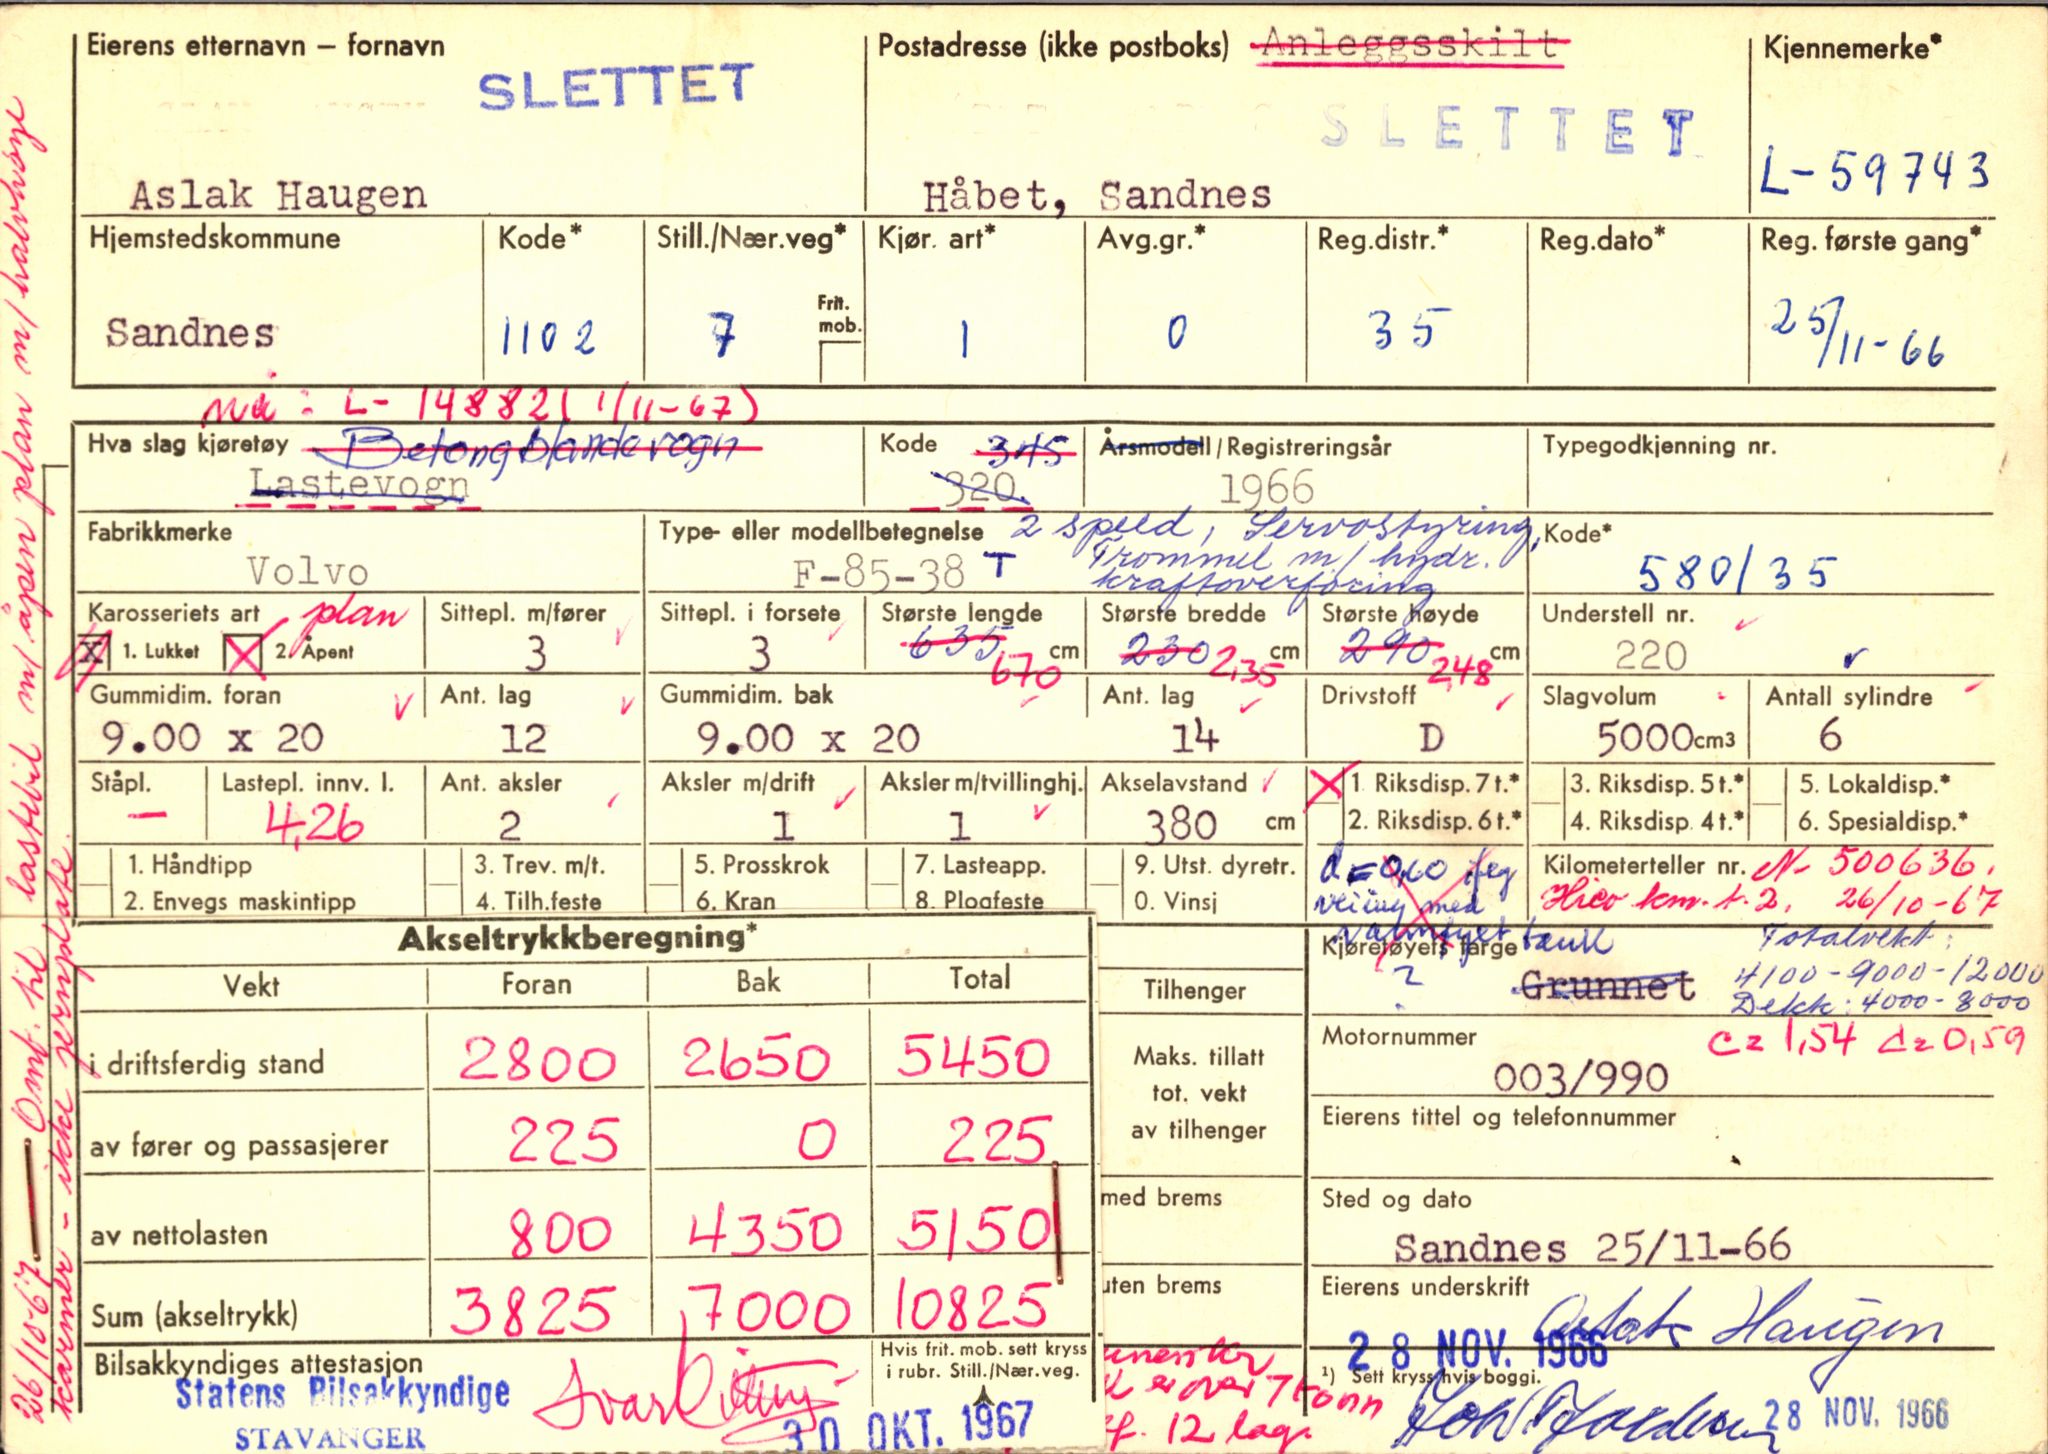 Eierens etternavn – fornavn
SLETTET
Aslak Haugen
Postadresse (ikke postboks) Anleggsskilt
SLETTET
Håbet, Sandnes
Kjennemerke*
L-59743
Hjemstedskommune
Sandnes
Kode*
1102
Still./Nær.veg*
7
Frit. mob.
Kjør. art*
1
Avg.gr.*
0
Reg.distr.*
35
Reg.dato*
Reg. første gang*
25/11-66
nå: L-14882 (1/11-67)
Hva slag kjøretøy Betongblandevogn
Lastevogn
Kode 345
320
Årsmodell/Registreringsår
1966
Typegodkjenning nr.
Fabrikkmerke
Volvo
Type- eller modellbetegnelse
F-85-38 T
2 speed, Servostyring,
Trommel m/ hydr.
kraftoverføring
Kode*
580/35
Karosseriets art plan
X 1. Lukket X 2. Åpent
Sittepl. m/fører
3
Sittepl. i forsete
3
Største lengde
635 cm
670
Største bredde
230 cm
2,35
Største høyde
290 cm
2,48
Understell nr.
220
Gummidim. foran
9.00 x 20
Ant. lag
12
Gummidim. bak
9.00 x 20
Ant. lag
14
Drivstoff
D
Slagvolum
5000 cm3
Antall sylindre
6
Ståpl.
—
Lastepl. innv. l.
4,26
Ant. aksler
2
Aksler m/drift
1
Aksler m/tvillinghj.
1
Akselavstand
380 cm
X 1. Riksdisp. 7 t.*
2. Riksdisp. 6 t.*
3. Riksdisp. 5 t.*
4. Riksdisp. 4 t.*
5. Lokaldisp.*
6. Spesialdisp.*
1. Håndtipp
2. Envegs maskintipp
3. Trev. m/t.
4. Tilh.feste
5. Prosskrok
6. Kran
7. Lasteapp.
8. Plogfeste
9. Utst. dyretr.
0. Vinsj
veiing med
tank
Kilometerteller nr. N- 500636.
Hico km.t. 2. 26/10-67
Kjøretøyets farge
?
Grunnet
Totalvekt:
4100-9000-12000
Dekk: 4000-8000
Akseltrykkberegning*
Vekt Foran Bak Total
i driftsferdig stand 2800 2650 5450
av fører og passasjerer 225 0 225
av nettolasten 800 4350 5150
Sum (akseltrykk) 3825 7000 10825
Bilsakkyndiges attestasjon
Statens Bilsakkyndige
STAVANGER
30 OKT. 1967
Hvis frit. mob. sett kryss
i rubr. Still./Nær.veg.
Tilhenger
Maks. tillatt
tot. vekt
av tilhenger
med brems
uten brems
er over 7 tonn
12 lag.
Motornummer
003/990
c= 1,54 d= 0,59
Eierens tittel og telefonnummer
Sted og dato
Sandnes 25/11-66
Eierens underskrift
Aslak Haugen
28 NOV. 1966
¹) Sett kryss hvis boggi.
28 NOV. 1966
26/10-67 — Omb. til lastebil m/åpen plan m/halvhøye
karmer - ikke semplate.